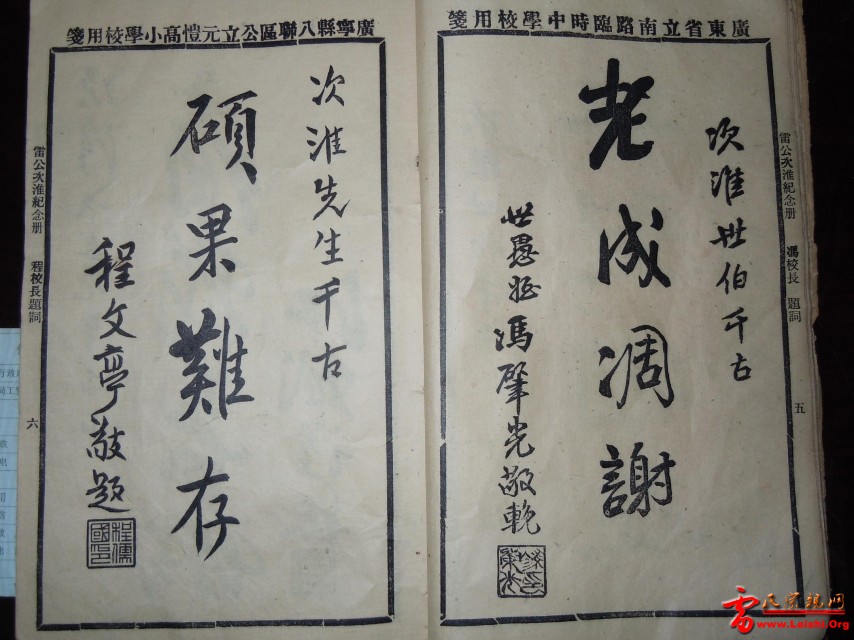 廣東省立南路臨時中學校用箋
次淮世伯千古
老成凋謝
世愚姪馮肇光敬輓
雷公次淮紀念册
馮校長 題詞
五
廣寧縣八聯區公立元愷高小學校用箋
次淮先生千古
碩果難存
程文亭敬題
程儒國印
雷公次淮紀念册
程校長題詞
六
雷氏資訊网
www.Leishi.Org